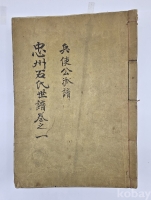 兵使公派譜
忠州石氏世譜卷之一
kobay